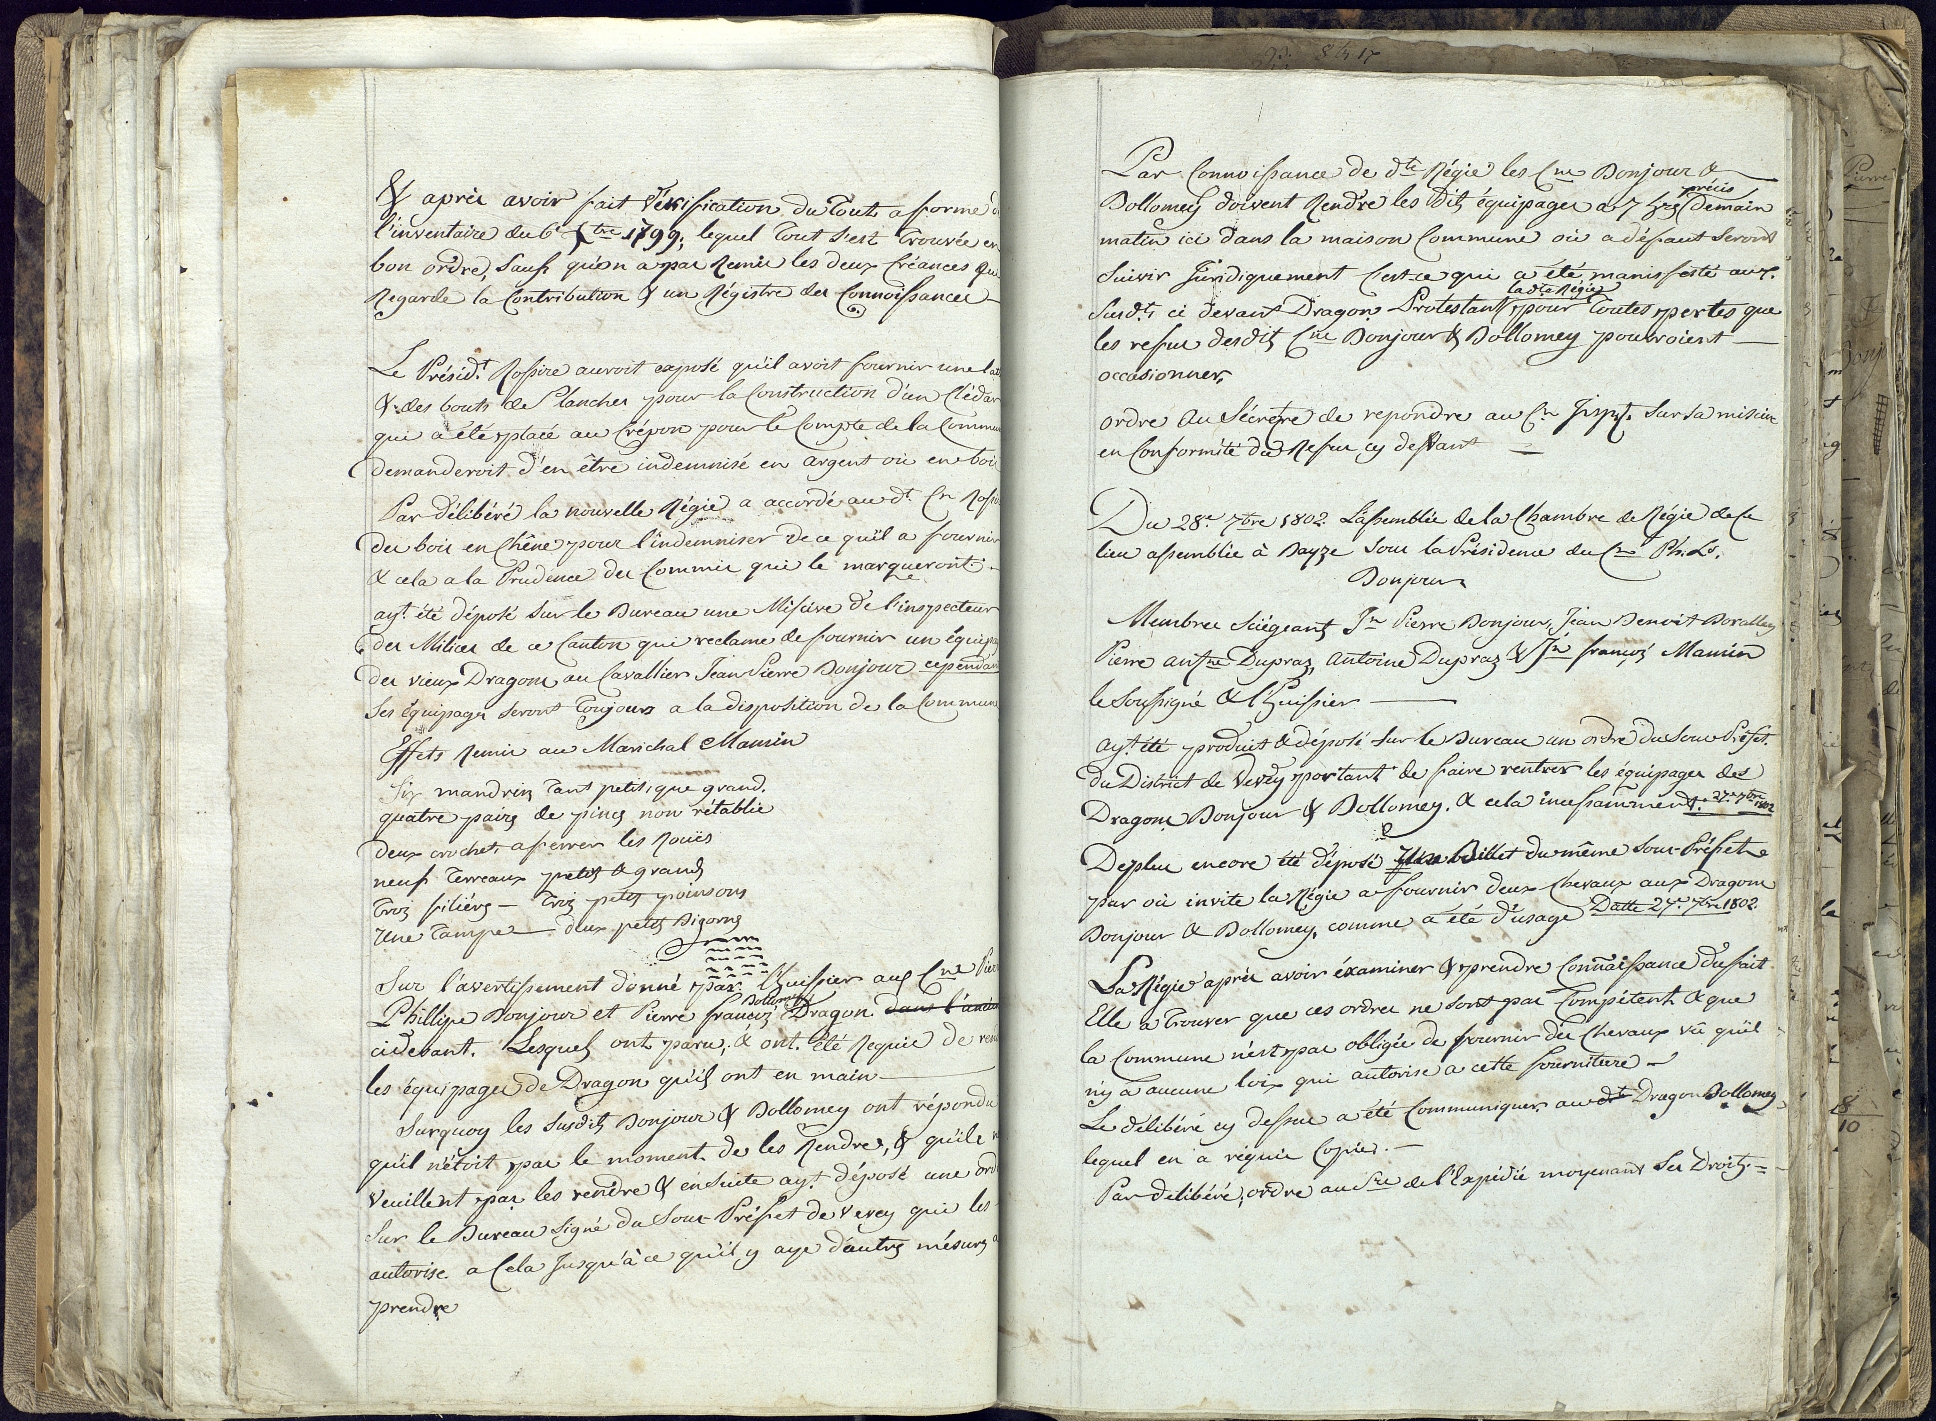 & après avoir fait Vérification du Tout a forme d
l'inventaire du 6e 7bre 1799; lequel Tout s'est Trouvée en
bon ordre, Sauf qu'on a pas Remis les deux Créances Qu
Regarde la Contribution & un Régistre des Connoissances —
Le Présidt Rossire auroit exposé qu'il avoit fournir une lat
& des bouts de Planches pour la Construction d'un Clédar
qui a été placé au Crépon pour le Compte de la Commun
demanderoit d'en être indemnisé en argent où en bois
Par délibéré la nouvelle Régie a accordé au dt Cn Rossir
des bois en Chêne pour l'indemniser de ce qu'il a fournir
& cela a la Prudence des Commis qui le marqueront. —
ayt été déposé Sur le Bureau une Missive de l'inspecteur
des Milices de ce Canton qui reclame de fournir un équipag
des vieux Dragons au Cavallier Jean Pierre Bonjour cependan
Ses équipages seront Toujours a la disposition de la Commune
Effets Remis au Marichal Mamin
Six mandrins Tant petits que grand.
quatre paires de pinces non rétablie
deux crochets a ferrer les Roues
neuf Terreaux petits & grands
Trois filiérs — Trois petits poinsons
Une Tampe — deux petits Bigorns
Sur l'avertissement donné par l'huissier aux Cns Pier
Phillipe Bonjour et Pierre françois Dollomey Dragon dans l'ancien
cidevant. Lesquels ont paru, & ont été Requis de rend
les équipages de Dragon qu'ils ont en main —
Surquoy les Susdits Bonjour & Dollomey ont répondu
qu'il n'étoit pas le moment de les Rendre, & qu'ils n
veuillent pas les rendre & ensuite ayt déposé une ord
Sur le Bureau Signé du Sous Préfet de Vevey qui les
autorise a Cela Jusqu'à ce qu'il y aye d'autres mésures a
prendre
Par Connoissance de dte Régie les Cns Bonjour &
Dollomey doivent Rendre les Dits équipages a 7 hres précis Demain
matin ici dans la maison Commune où a défaut Seront
Suivis Juridiquement C'est ce qui a été manifesté aux
Susdts ci devant Dragons Protestant ladte Régie pour Toutes pertes que
les refus desdits Cns Bonjour & Dollomey pourroient —
occasionner,
ordre au Sécretre de repondre au Cn Inspt. Sur sa missive
en Conformité du Refus cy devant =
Du 28e 7bre 1802. L'assemblée de la Chambre de Régie de Ce
lieu assemblée à Bayze sous la Présidence du Cn Ph. Ls.
Bonjour
Membres Siégeants Jn Pierre Bonjour, Jean Benoit Dovallon
Pierre antne Dupraz, Antoine Dupraz & Jn françois Mamin
le Soussigné & l'huissier —
Ayt été produit & déposé sur le Bureau un ordre du Sous Préfet.
du District de Vevey portant de faire rentrer les équipages des
Dragons Bonjour & Dollomey. & cela incessamment. 27e 7bre 1802
De plus encore été déposé Billet du même Sous-Préfet
par où invite la Régie a fournir deux Chevaux aux Dragons
Bonjour & Dollomey, comme a été d'usage Datte 27e 7bre 1802.
La Régie après avoir éxaminer & prendre Connoissance du fait
Elle a Trouver que ces ordres ne sont pas Compétents & que
la Commune n'est pas obligée de fournir des Chevaux vû qu'il
n'y a aucune loix qui autorise a cette fourniture —
Le délibéré cy dessus a été Communiquer au dt Dragon Dollomey
lequel en a réquis Copie. —
Par délibéré, ordre au Sre de l'Expédié moyenant Ses Droits. =